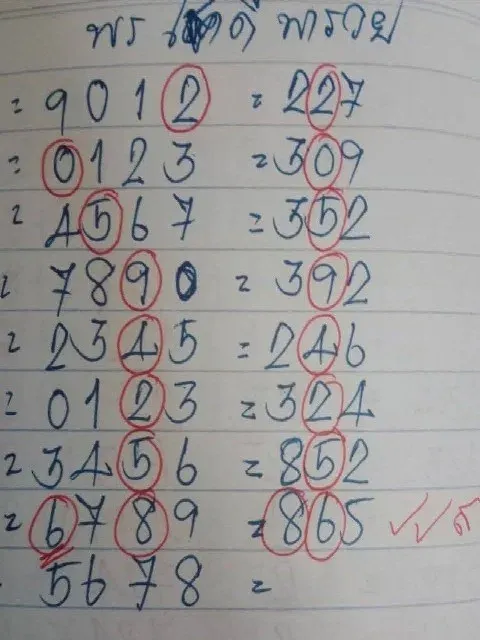 พร โชคดี พารวย
= 9012 = 227
= 0123 = 309
= 4567 = 352
= 7890 = 392
= 2345 = 246
= 0123 = 324
= 3456 = 852
= 6789 = 865 ✓✓
5678 =